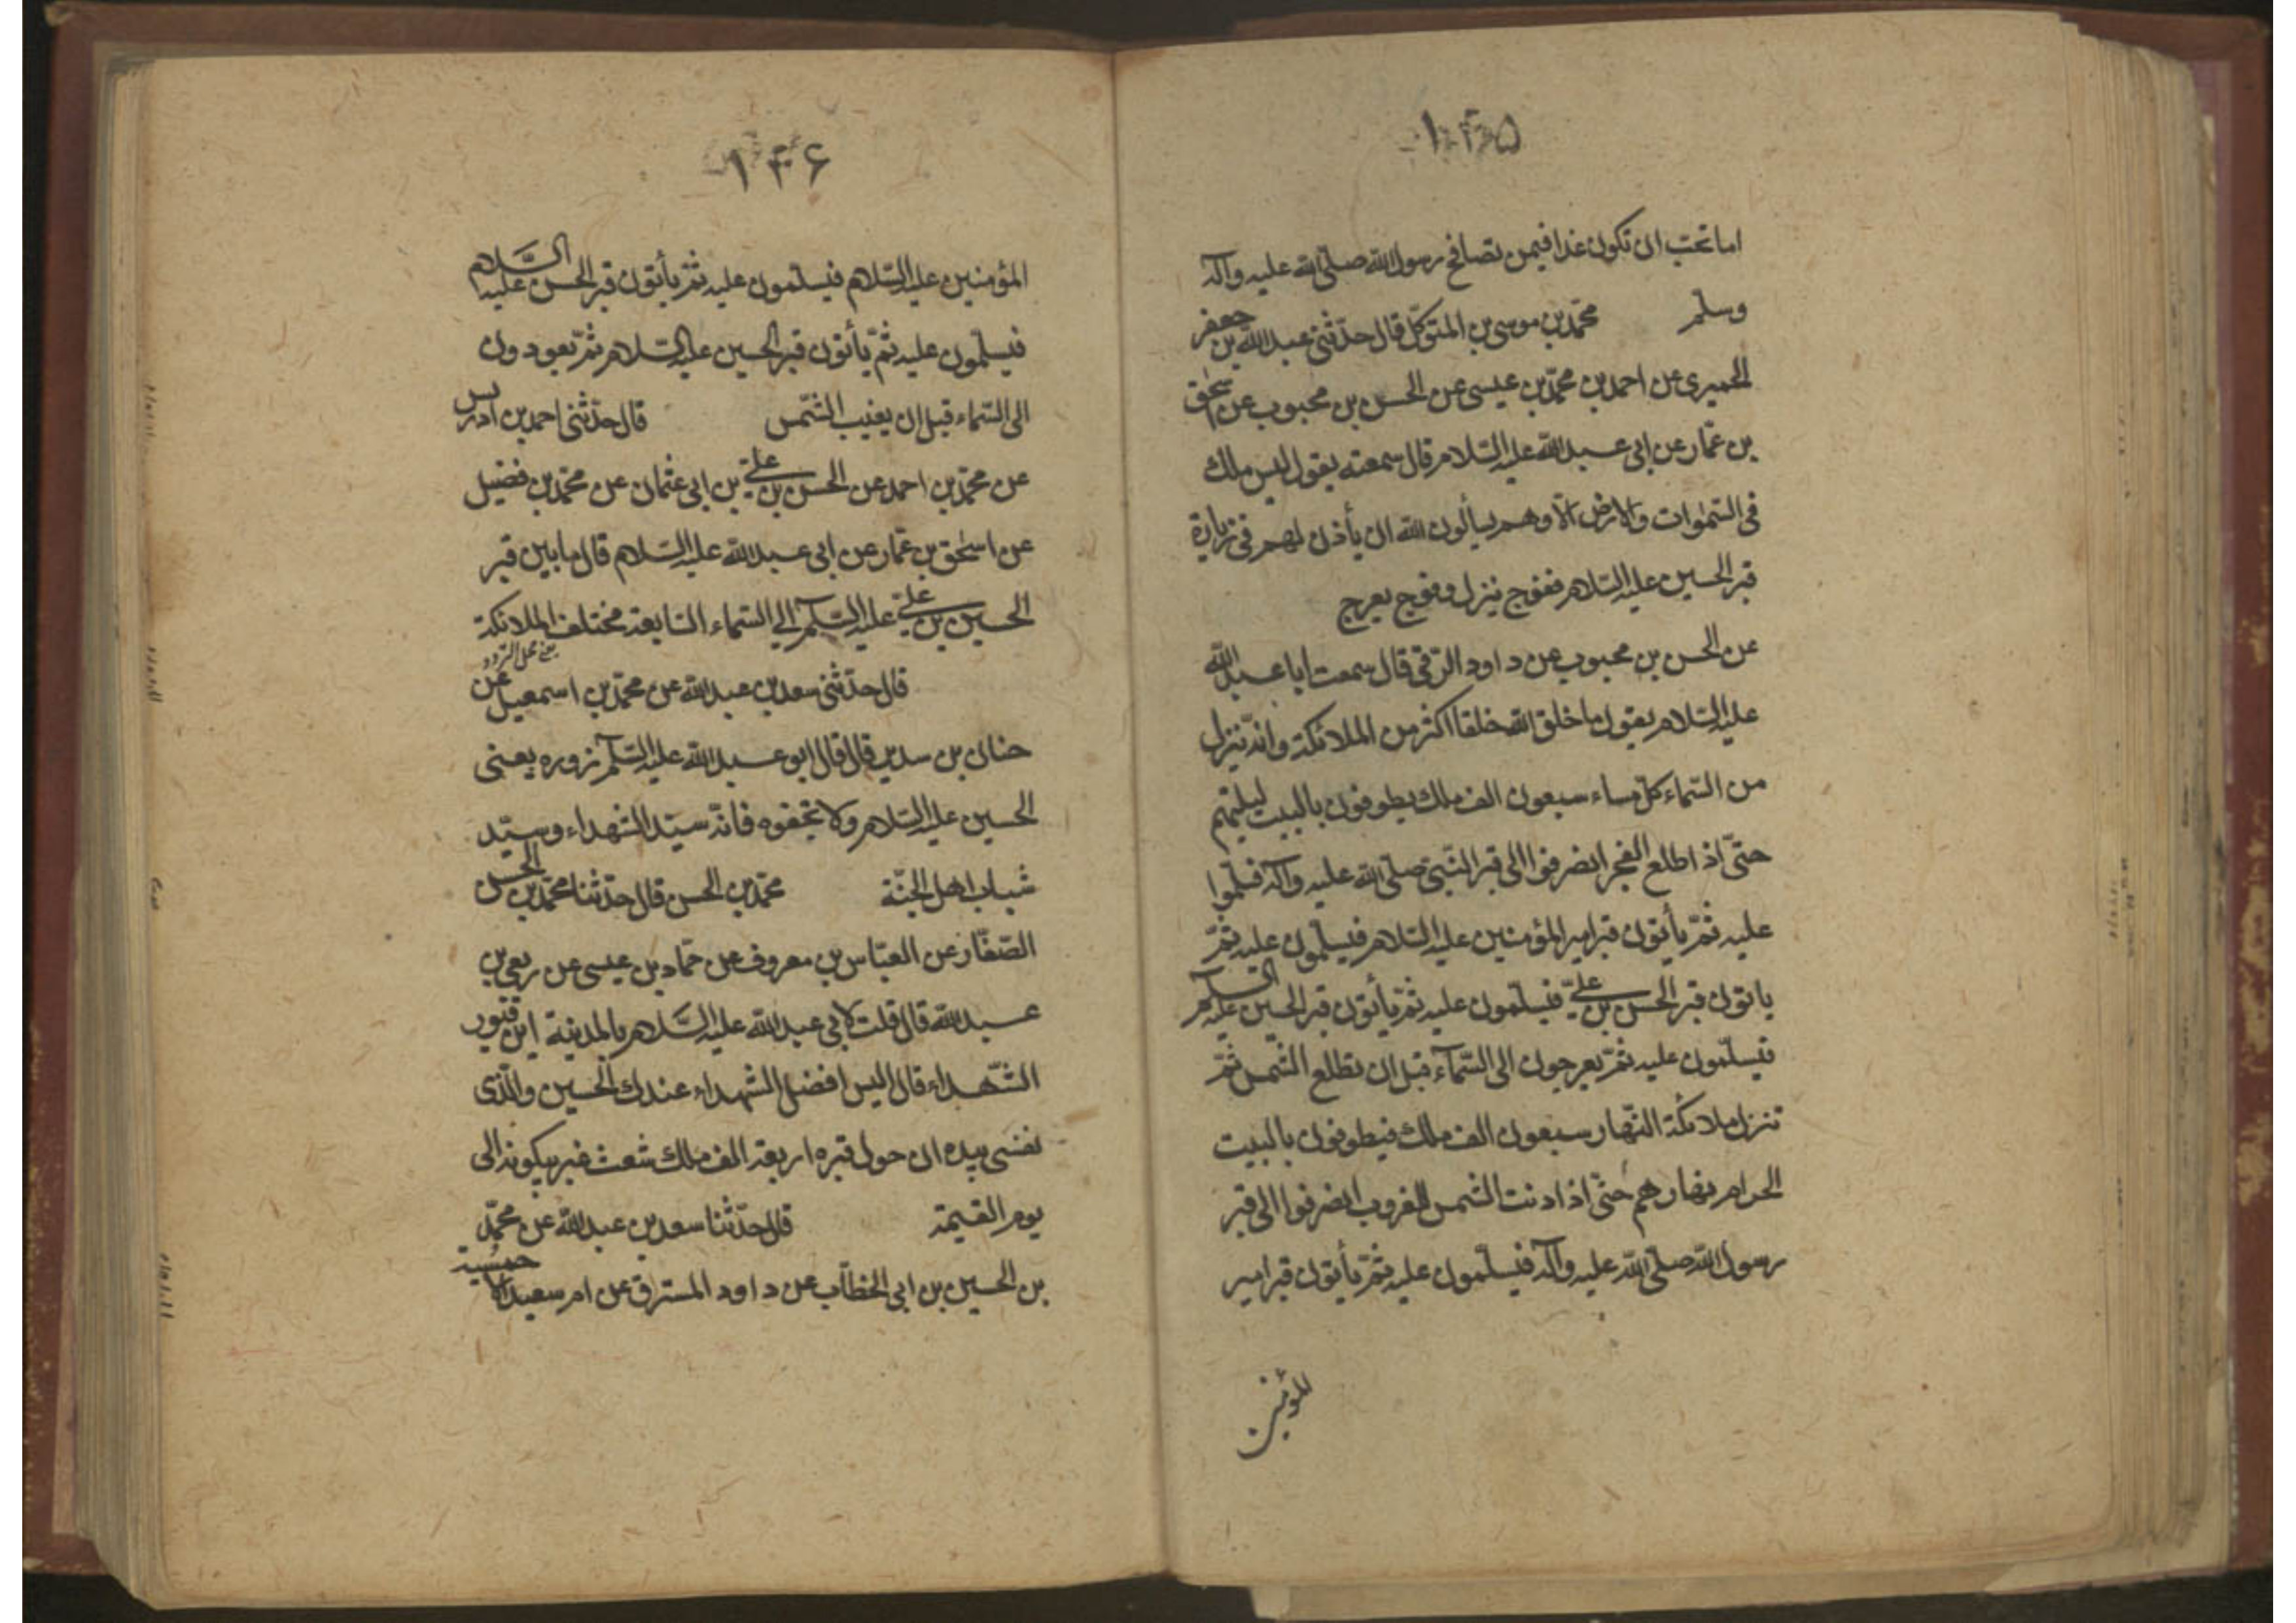 ۱۴۵
اما تحب ان تكون غدا فيمن تصافح رسول الله صلّى الله عليه وآله
وسلّم محمّد بن موسى بن المتوكّل قال حدّثنى عبد الله بن جعفر
الحميرى عن احمد بن محمّد بن عيسى عن الحسن بن محبوب عن اسحٰق
بن عمّار عن ابى عبد الله عليه السّلام قال سمعته يقول ليس ملك
فى السّمٰوات والارض الّا وهم يسألون الله ان يأذن لهم فى زيارة
قبر الحسين عليه السّلام ففوج ينزل وفوج يعرج
عن الحسن بن محبوب عن داود الرّقى قال سمعت ابا عبد الله
عليه السّلام يقول ما خلق الله خلقا اكثر من الملائكة وانّه ينزل
من السّماء كلّ مساء سبعون الف ملك يطوفون بالبيت ليلتهم
حتّى اذا طلع الفجر انصرفوا الى قبر النّبىّ صلّى الله عليه وآله فسلّموا
عليه ثمّ يأتون قبر امير المؤمنين عليه السّلام فيسلّمون عليه ثمّ
ياتون قبر الحسن بن علىّ فيسلّمون عليه ثمّ يأتون قبر الحسين عليه السّلام
فيسلّمون عليه ثمّ يعرجون الى السّمآء قبل ان تطلع الشّمس ثمّ
تنزل ملائكة النّهار سبعون الف ملك فيطوفون بالبيت
الحرام نهارهم حتّى اذا دنت الشّمس للغروب انصرفوا الى قبر
رسول الله صلّى الله عليه وآله فيسلّمون عليه ثمّ يأتون قبر امير
المؤمنين
۱۴۶
المؤمنين عليه السّلام فيسلّمون عليه ثمّ يأتون قبر الحسن عليه السّلام
فيسلّمون عليه ثمّ يأتون قبر الحسين عليه السّلام ثمّ يعودون
الى السّماء قبل ان يغيب الشّمس قال حدّثنى احمد بن ادريس
عن محمّد بن احمد عن الحسن بن علىّ بن ابى عثمان عن محمّد بن فضيل
عن اسحٰق بن عمّار عن ابى عبد الله عليه السّلام قال ما بين قبر
الحسين بن علىّ عليه السّلم الى السّماء السّابعة مختلف الملائكة
يعنى محل التردد
قال حدّثنى سعد بن عبد الله عن محمّد بن اسمعيل عن
حنان بن سدير قال قال ابو عبد الله عليه السّلم زوره يعنى
الحسين عليه السّلام ولا تجفوه فانّه سيّد الشّهداء وسيّد
شباب اهل الجنّة محمّد بن الحسن قال حدّثنا محمّد بن الحسن
الصّفّار عن العبّاس بن معروف عن حمّاد بن عيسى عن ربعى بن
عبد الله قال قلت لابى عبد الله عليه السّلام بالمدينة اين قبور
الشّهداء قال اليس افضل الشّهداء عندك الحسين والّذى
نفسى بيده ان حول قبره اربعة الف ملك شعث غبر يبكونه الى
يوم القيمة قال حدّثنا سعد بن عبد الله عن محمّد
بن الحسين بن ابى الخطّاب عن داود المسترق عن ام سعيد الاحمسية